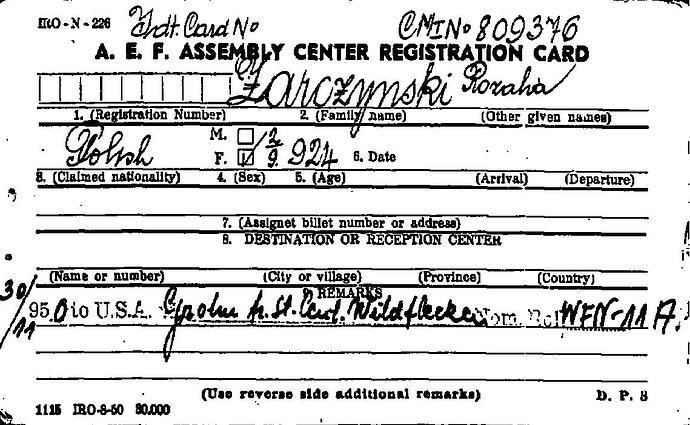 IRO-N-226 Idt. Card No CM1No 809376
A. E. F. ASSEMBLY CENTER REGISTRATION CARD
Zarczynski Rozalia
1. (Registration Number) 2. (Family name) (Other given names)
Polish M. F. 2/9 924 6. Date
3. (Claimed nationality) 4. (Sex) 5. (Age) (Arrival) (Departure)
7. (Assignet billet number or address)
8. DESTINATION OR RECEPTION CENTER
(Name or number) (City or village) (Province) (Country)
9 REMARKS
30/11 950 to U.S.A. Wildflecken Nom. Rol WFN-11 A.
(Use reverse side additional remarks) D. P. 3
1115 IRO-8-50 80.000